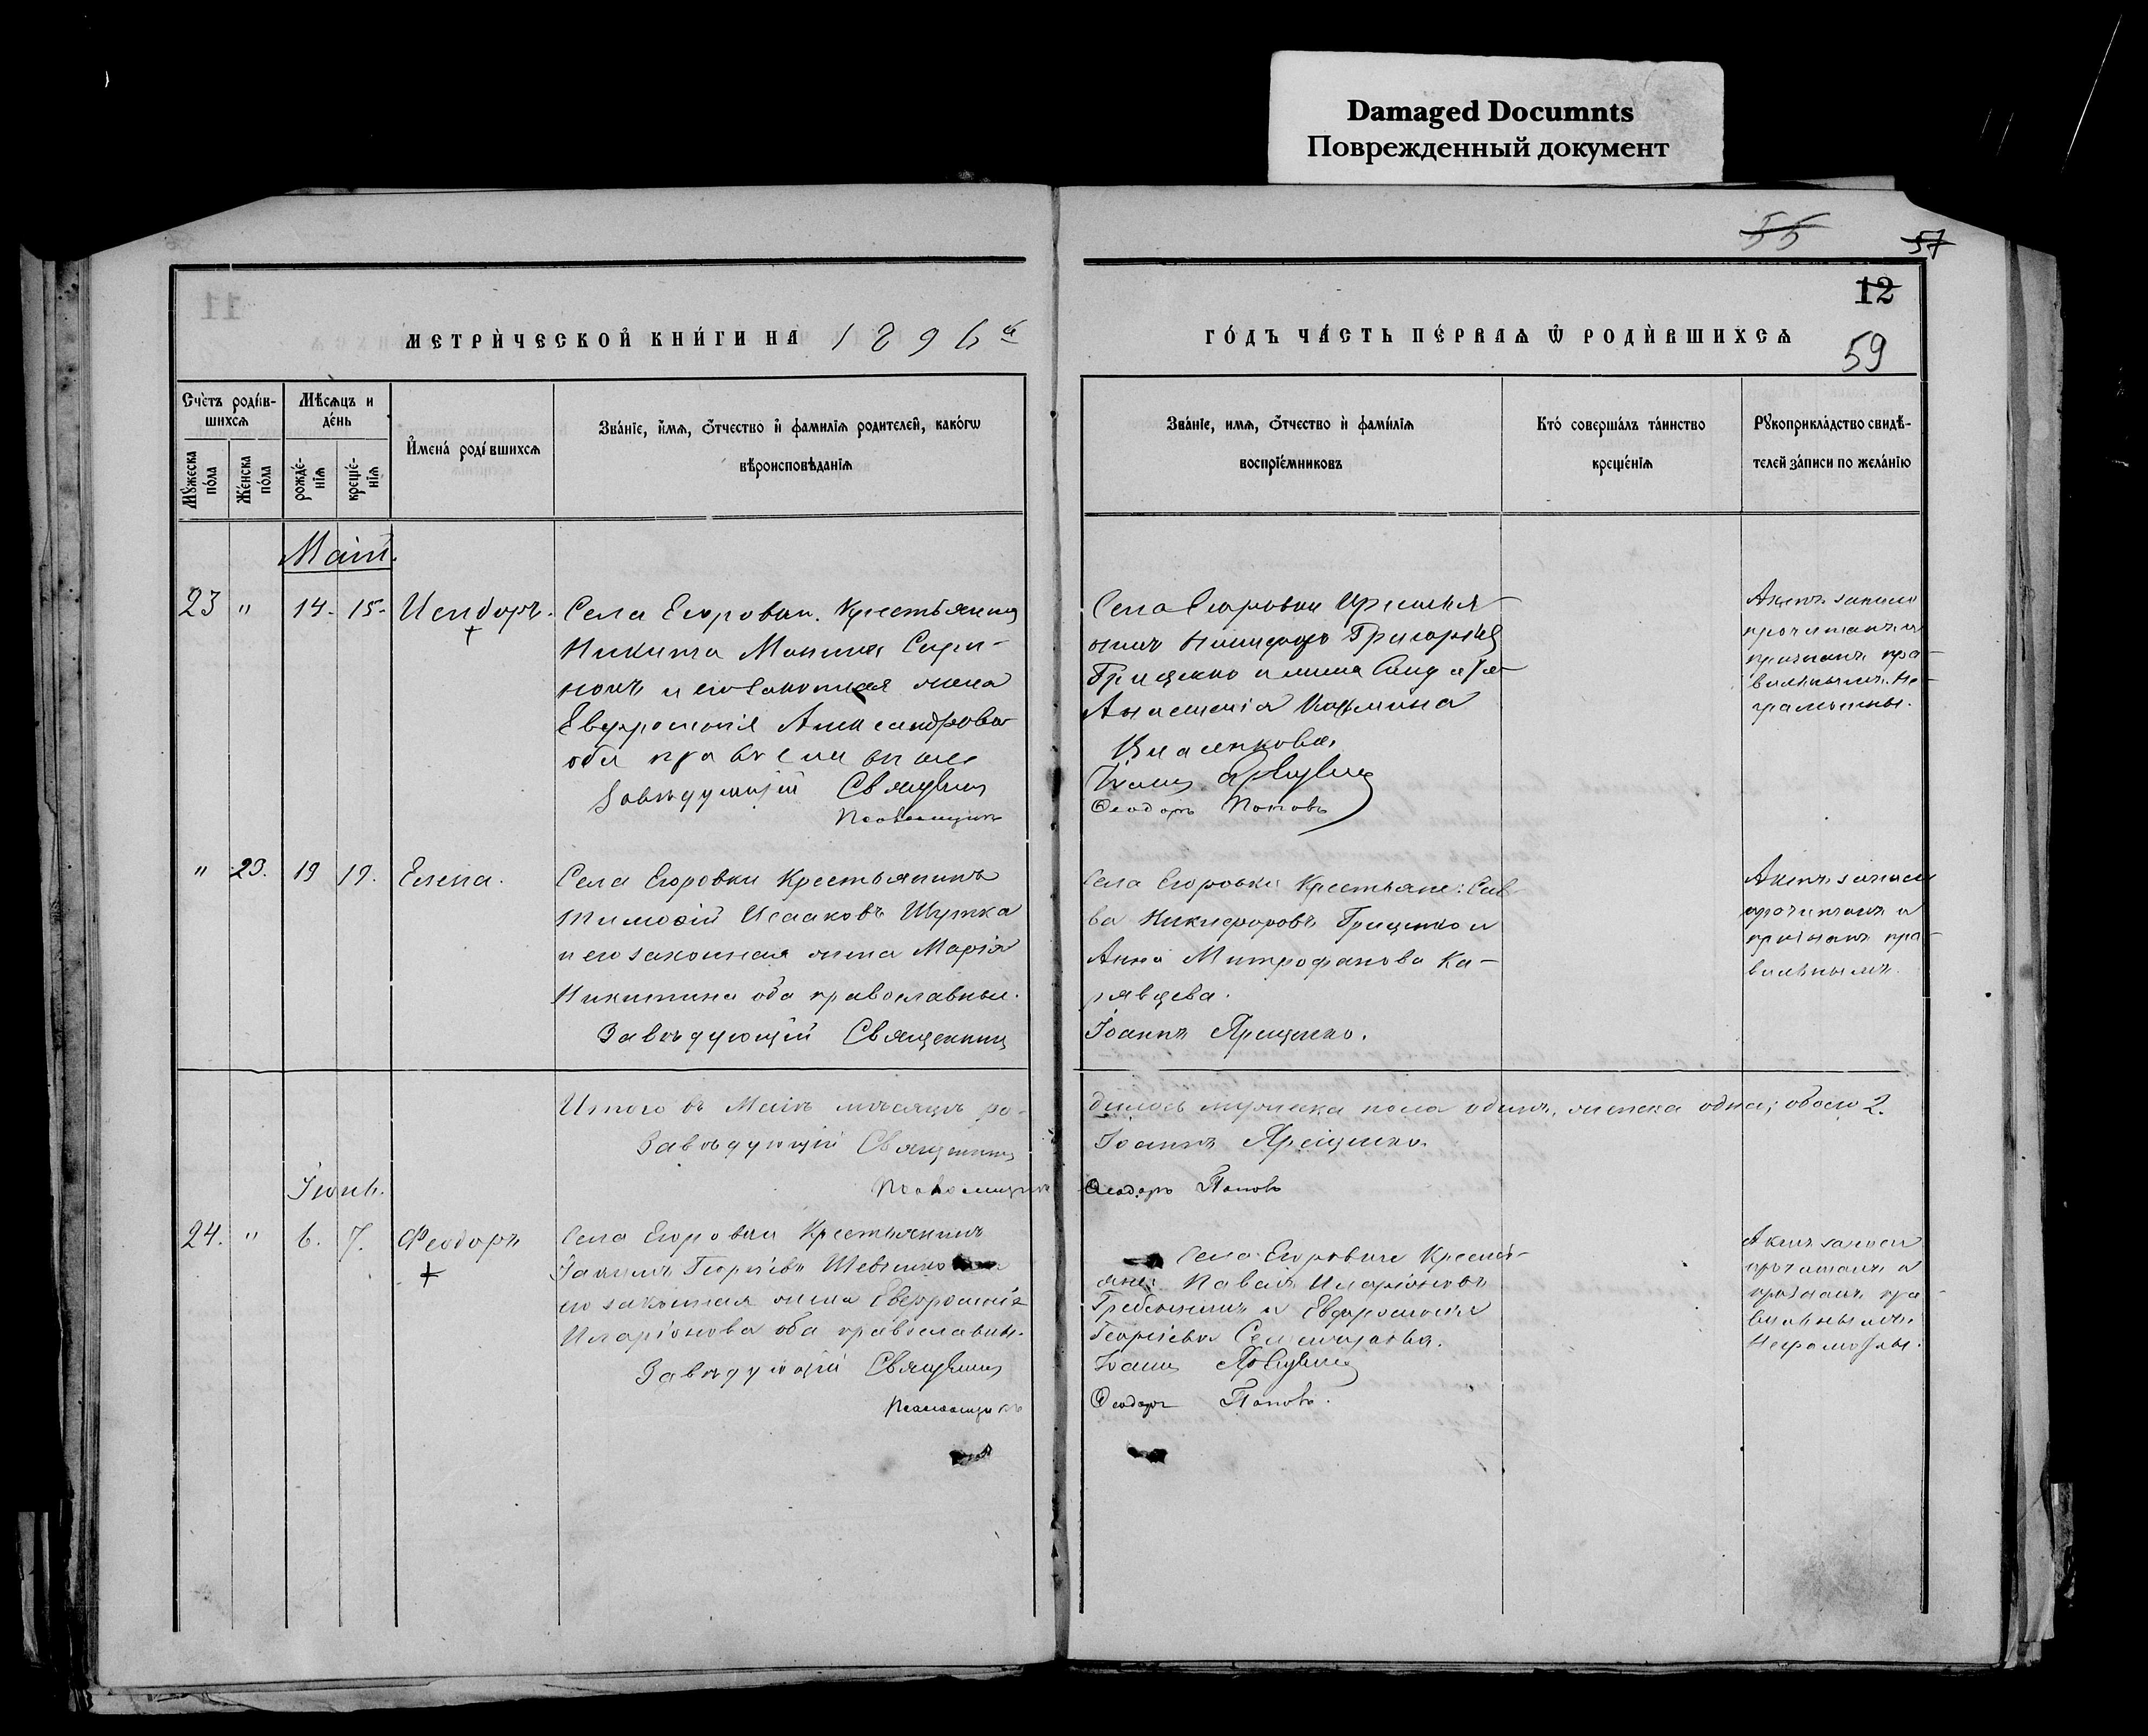 Damaged Documnts
Поврежденный документ
55
57
12
59
МЕТРИЧЕСКОЙ КНИГИ НА 1896й
ГОДЪ ЧАСТЬ ПЕРВАЯ Ѿ РОДИВШИХСЯ
Счетъ родив-
шихся
Мѣсяцъ и
день
Мужеска
пола
Женска
пола
рожде-
нія
креще-
нія
Имена родившихся
Званіе, имя, отчество и фамилія родителей, какогω
вѣроисповѣданія
Званіе, имя, отчество и фамилія
воспріемниковъ
Кто совершалъ таинство
крещенія
Рукоприкладство свидѣ-
телей записи по желанію
Маій.
23 " 14. 15. Исидоръ.
Села Егоровки. Крестьянинъ
Никита
и его законная жена
Евфросинія Александрова
оба православные
Завѣдующій Священникъ
Псаломщикъ
Села Егоровки Крестья-
нинъ Никифоръ Григорьевъ
Грищенко и
Анастасія
Іоаннъ
Ѳеодоръ Поповъ
Актъ записи
прочитанъ и
признанъ пра-
вильнымъ. Не-
грамотны.
" 29. 19 19. Елена.
Села Егоровки Крестьянинъ
Тимоѳій Исааковъ Шутка
и его законная жена Марія
Никитина оба православные.
Завѣдующій Священникъ
Села Егоровки Крестьяне: Сав-
ва Никифоровъ Грищенко и
Анна Митрофанова Ка-
рявцева.
Іоаннъ Ярещенко.
Актъ записи
прочитанъ и
признанъ пра-
вильнымъ.
Итого въ Маіѣ мѣсяцѣ ро-
дилось мужеска пола одинъ, женска одна; обоего 2.
Завѣдующій Священникъ
Іоаннъ Ярещенко.
Псаломщикъ
Ѳеодоръ Поповъ
Іюнь.
24. " 6. 7. Феодоръ
Села Егоровки Крестьянинъ
Іакимъ Георгіевъ Шевченко
его законная жена Евфросинія
Иларіонова оба православны.
Завѣдующій Священникъ
Псаломщикъ
Села Егоровки Крестья-
яне: Павелъ Иларіоновъ
Гребенникъ и Евфросинія
Георгіева
Іоаннъ
Ѳеодоръ Поповъ.
Актъ записи
прочитанъ и
признанъ пра-
вильнымъ.
Неграмотны.